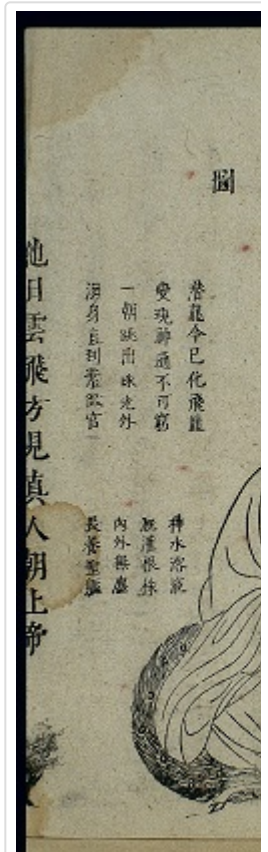 圖
潛龍今已化飛龍
變現神通不可窮
一朝跳出珠光外
渾身直到紫微宮
神水溶液
溉灌根株
內外無塵
長養聖軀
他日雲飛方見真人朝上帝